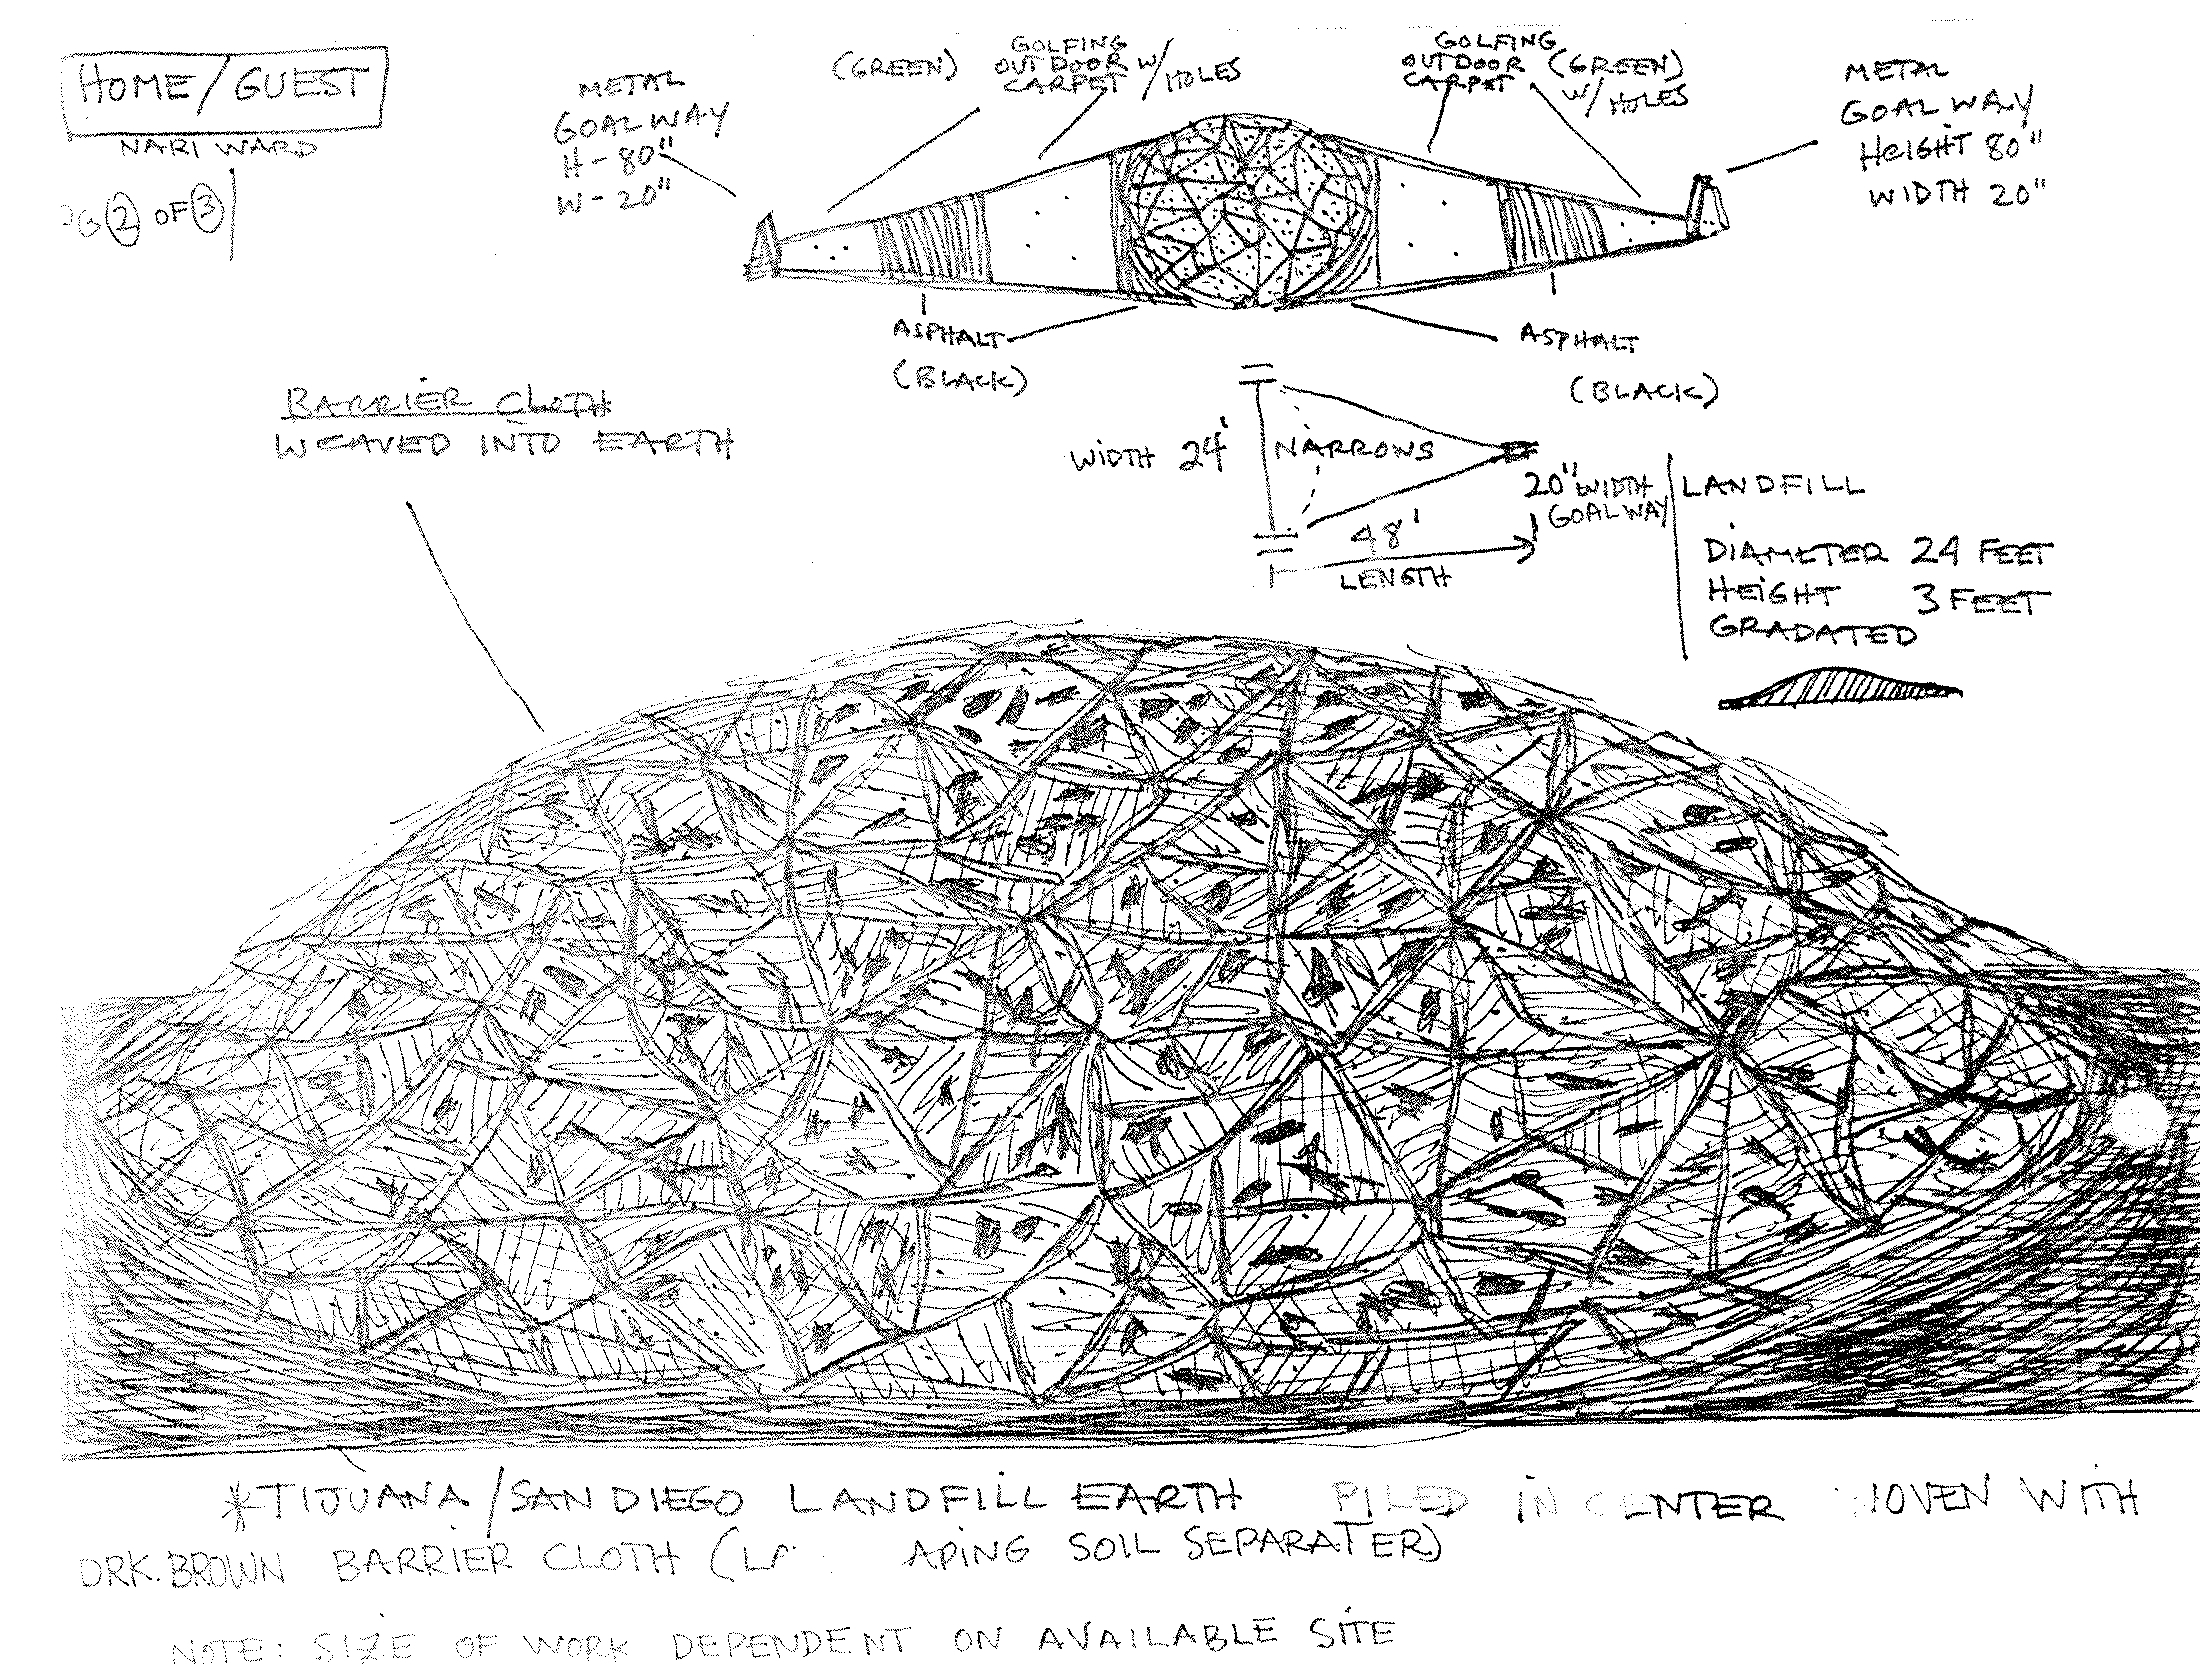 HOME/GUEST
NARI WARD
PG 2 OF 3
METAL
GOALWAY
H - 80"
W - 20"
(GREEN)
GOLFING
OUTDOOR W/ HOLES
CARPET
GOLFING
OUTDOOR (GREEN)
CARPET W/ HOLES
METAL
GOALWAY
HEIGHT 80"
WIDTH 20"
ASPHALT
(BLACK)
ASPHALT
(BLACK)
BARRIER CLOTH
WEAVED INTO EARTH
WIDTH 24'
NARROWS
20" WIDTH
GOALWAY
48'
LENGTH
LANDFILL
DIAMETER 24 FEET
HEIGHT 3 FEET
GRADATED
*TIJUANA/SAN DIEGO LANDFILL EARTH PILED IN CENTER WOVEN WITH
DRK. BROWN BARRIER CLOTH ( APING SOIL SEPARATER)
NOTE: SIZE OF WORK DEPENDENT ON AVAILABLE SITE